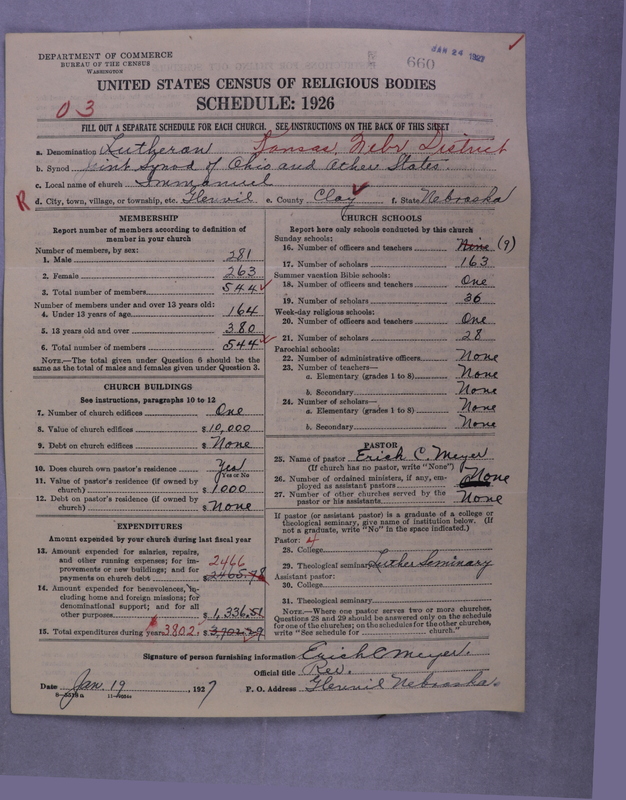 DEPARTMENT OF COMMERCE
BUREAU OF THE CENSUS
WASHINGTON
JAN 24 1927
660
UNITED STATES CENSUS OF RELIGIOUS BODIES
SCHEDULE: 1926
03
FILL OUT A SEPARATE SCHEDULE FOR EACH CHURCH. SEE INSTRUCTIONS ON THE BACK OF THIS SHEET
a. Denomination Lutheran Kansas Nebr District
b. Synod Joint Synod of Ohio and Other States
c. Local name of church Immanuel
R d. City, town, village, or township, etc. Glenvil e. County Clay f. State Nebraska
MEMBERSHIP
Report number of members according to definition of member in your church
Number of members, by sex:
1. Male 281
2. Female 263
3. Total number of members 544
Number of members under and over 13 years old:
4. Under 13 years of age 164
5. 13 years old and over 380
6. Total number of members 544
NOTE.—The total given under Question 6 should be the same as the total of males and females given under Question 3.
CHURCH BUILDINGS
See instructions, paragraphs 10 to 12
7. Number of church edifices One
8. Value of church edifices $10,000
9. Debt on church edifices $ None
10. Does church own pastor's residence Yes
Yes or No
11. Value of pastor's residence (if owned by church) $ 1000
12. Debt on pastor's residence (if owned by church) $ None
EXPENDITURES
Amount expended by church during last fiscal year
13. Amount expended for salaries, repairs, and other running expenses; for improvements or new buildings; and for payments on church debt 2466 $2465.78
14. Amount expended for benevolences, including home and foreign missions; for denominational support; and for all other purposes $1,336.51
15. Total expenditures during year 3802 $
CHURCH SCHOOLS
Report here only schools conducted by this church
Sunday schools:
16. Number of officers and teachers Nine (9)
17. Number of scholars 163
Summer vacation Bible schools:
18. Number of officers and teachers One
19. Number of scholars 36
Week-day religious schools:
20. Number of officers and teachers One
21. Number of scholars 28
Parochial schools:
22. Number of administrative officers None
23. Number of teachers—
a. Elementary (grades 1 to 8) None
b. Secondary None
24. Number of scholars—
a. Elementary (grades 1 to 8) None
b. Secondary None
PASTOR
25. Name of pastor Erich C. Meyer
(If church has no pastor, write "None")
26. Number of ordained ministers, if any, employed as assistant pastors None
27. Number of other churches served by the pastor or his assistants None
If pastor (or assistant pastor) is a graduate of a college or theological seminary, give name of institution below. (If not a graduate, write "No" in the space indicated.)
Pastor: 4
28. College
29. Theological seminary Luther Seminary
Assistant pastor:
30. College
31. Theological seminary
NOTE.—Where one pastor serves two or more churches, Questions 28 and 29 should be answered only on the schedule for one of the churches; on the schedules for the other churches, write "See schedule for church."
Signature of person furnishing information Erich C Meyer.
Official title Rev.
Date Jan. 19, 1927 P. O. Address Glenvil Nebraska.